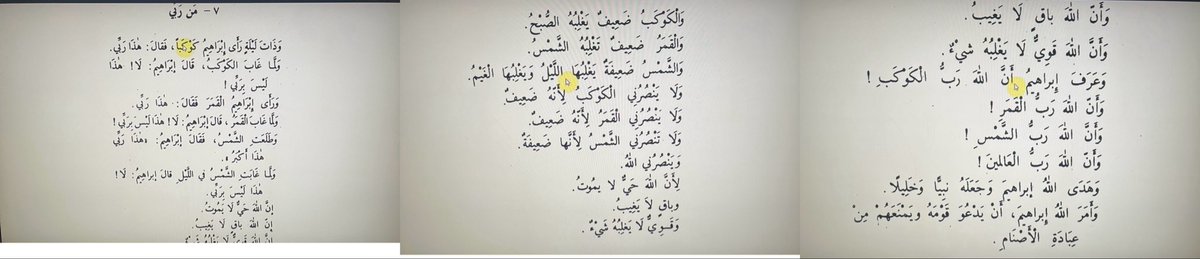 ٧ - مَن رَبِّي
وَذَاتَ لَيْلَةٍ رَأَى إِبْرَاهِيمُ كَوْكَبًا، فَقَالَ: هٰذَا رَبِّي.
وَلَمَّا غَابَ الكَوْكَبُ، قَالَ إِبْرَاهِيمُ: لَا! هٰذَا
لَيْسَ بِرَبِّي!
وَرَأَى إِبْرَاهِيمُ القَمَرَ فَقَالَ: هٰذَا رَبِّي.
وَلَمَّا غَابَ القَمَرُ، قَالَ إِبْرَاهِيمُ: لَا! هٰذَا لَيْسَ بِرَبِّي!
وَطَلَعَتِ الشَّمْسُ، فَقَالَ إِبْرَاهِيمُ: «هٰذَا رَبِّي
هٰذَا أَكْبَرُ».
وَلَمَّا غَابَتِ الشَّمْسُ فِي اللَّيْلِ قَالَ إِبراهِيمُ: لَا!
هٰذَا لَيْسَ بِرَبِّي.
إِنَّ اللهَ حَيٌّ لَا يَمُوتُ.
إِنَّ اللهَ بَاقٍ لَا يَغِيبُ.
إِنَّ اللهَ قَوِيٌّ لَا يَغْلِبُهُ شَيْءٌ.
وَالْكَوْكَبُ ضَعِيفٌ يَغْلِبُهُ الصُّبْحُ.
وَالْقَمَرُ ضَعِيفٌ تَغْلِبُهُ الشَّمْسُ.
وَالشَّمْسُ ضَعِيفَةٌ يَغْلِبُهَا اللَّيْلُ وَيَغْلِبُهَا الْغَيْمُ.
وَلَا يَنْصُرُنِي الْكَوْكَبُ لِأَنَّهُ ضَعِيفٌ.
وَلَا يَنْصُرُنِي الْقَمَرُ لِأَنَّهُ ضَعِيفٌ.
وَلَا تَنْصُرُنِي الشَّمْسُ لِأَنَّها ضَعِيفَةٌ.
وَيَنْصُرُنِي اللهُ.
لِأَنَّ اللهَ حَيٌّ لَا يمُوتُ.
وباقٍ لَا يَغِيبُ.
وَقَوِيٌّ لَا يَغْلِبُهُ شَيْءٌ.
وَأَنَّ اللهَ باقٍ لَا يَغِيبُ.
وَأَنَّ اللهَ قَوِيٌّ لَا يَغْلِبُهُ شَيْءٌ.
وَعَرَفَ إِبراهِيمُ أَنَّ اللهَ رَبُّ الْكَوْكَبِ!
وَأَنَّ اللهَ رَبُّ الْقَمَرِ!
وَأَنَّ اللهَ رَبُّ الشَّمْسِ!
وَأَنَّ اللهَ رَبُّ الْعَالمِينَ!
وَهَدَى اللهُ إِبراهِيمَ وَجَعَلَهُ نَبِيًّا وَخَلِيلًا.
وَأَمَرَ اللهُ إِبراهِيمَ، أَنْ يَدْعُوَ قَوْمَهُ وَيَمْنَعَهُمْ مِنْ
عِبَادَةِ الْأَصْنَامِ.